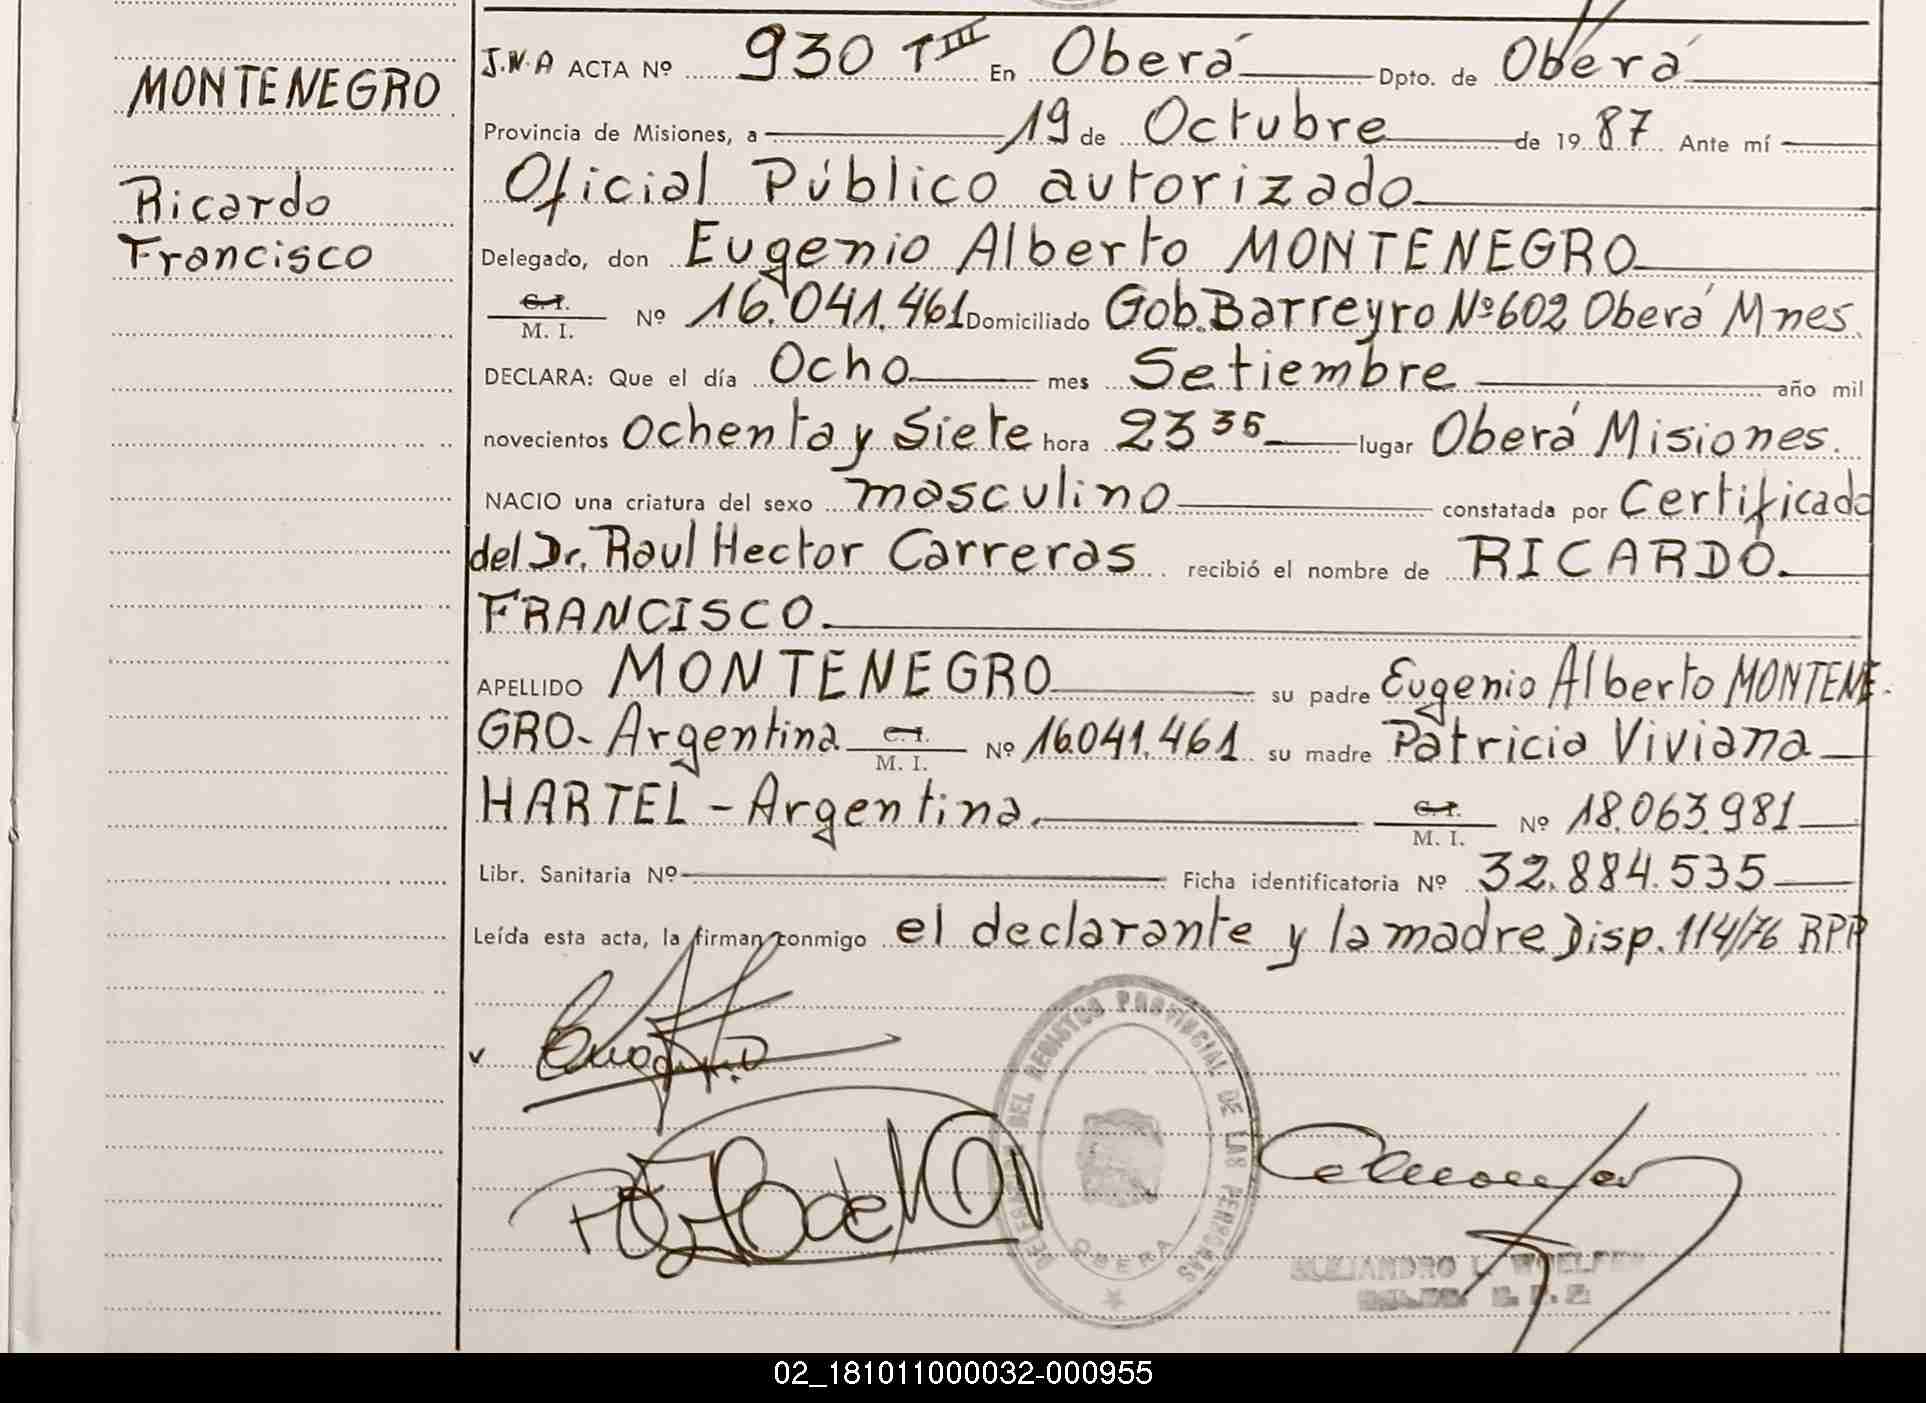 MONTENEGRO
Ricardo
Francisco
J.N.A ACTA Nº 930 TIII En Oberá Dpto. de Oberá
Provincia de Misiones, a 19 de Octubre de 1987 Ante mí
Oficial Público autorizado
Delegado, don Eugenio Alberto MONTENEGRO
C.I. M. I. Nº 16.041.461 Domiciliado Gob. Barreyro Nº 602 Oberá Mnes.
DECLARA: Que el día Ocho mes Setiembre año mil
novecientos Ochenta y Siete hora 23 35 lugar Oberá Misiones.
NACIO una criatura del sexo masculino constatada por Certificado
del Dr. Raul Hector Carreras recibió el nombre de RICARDO
FRANCISCO.
APELLIDO MONTENEGRO su padre Eugenio Alberto MONTENE-
GRO- Argentina C.I. M. I. Nº 16.041.461 su madre Patricia Viviana
HARTEL - Argentina. C.I. M. I. Nº 18.063.981
Libr. Sanitaria Nº Ficha identificatoria Nº 32.884.535
Leída esta acta, la firman conmigo el declarante y la madre Disp. 114/76 RPP
DEL REGISTRO PROVINCIAL DE LAS PERSONAS
OBERA
ALEJANDRO L.
02_181011000032-000955